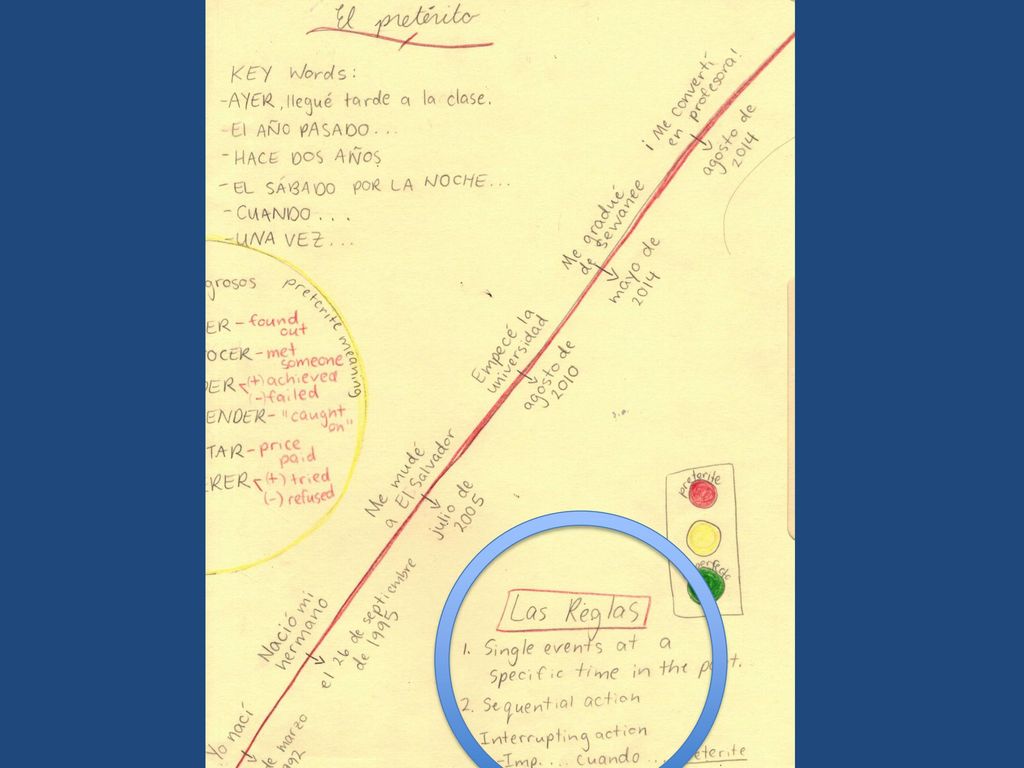 El pretérito
KEY Words:
-AYER, llegué tarde a la clase.
-El AÑO PASADO...
-HACE DOS AÑOS
-EL SÁBADO POR LA NOCHE...
-CUANDO...
-UNA VEZ...
grosos
preterite meaning
ER-found
out
OCER-met
someone
DER (+) achieved
(-) failed
ENDER-"caught
on"
TAR-price
paid
ERER (+) tried
(-) refused
¡Me convertí
en profesora!
agosto de
2014
Me gradué
de Sewanee
mayo de
2014
Empecé la
universidad
agosto de
2010
Me mudé
a El Salvador
julio de
2005
Nació mi
hermano
el 26 de septiembre
de 1995
Yo nací
de marzo
992
preterite
perfecto
Las Reglas
1. Single events at a
specific time in the
2. Sequential action
Interrupting action
-Imp.... Cuando...
eterite